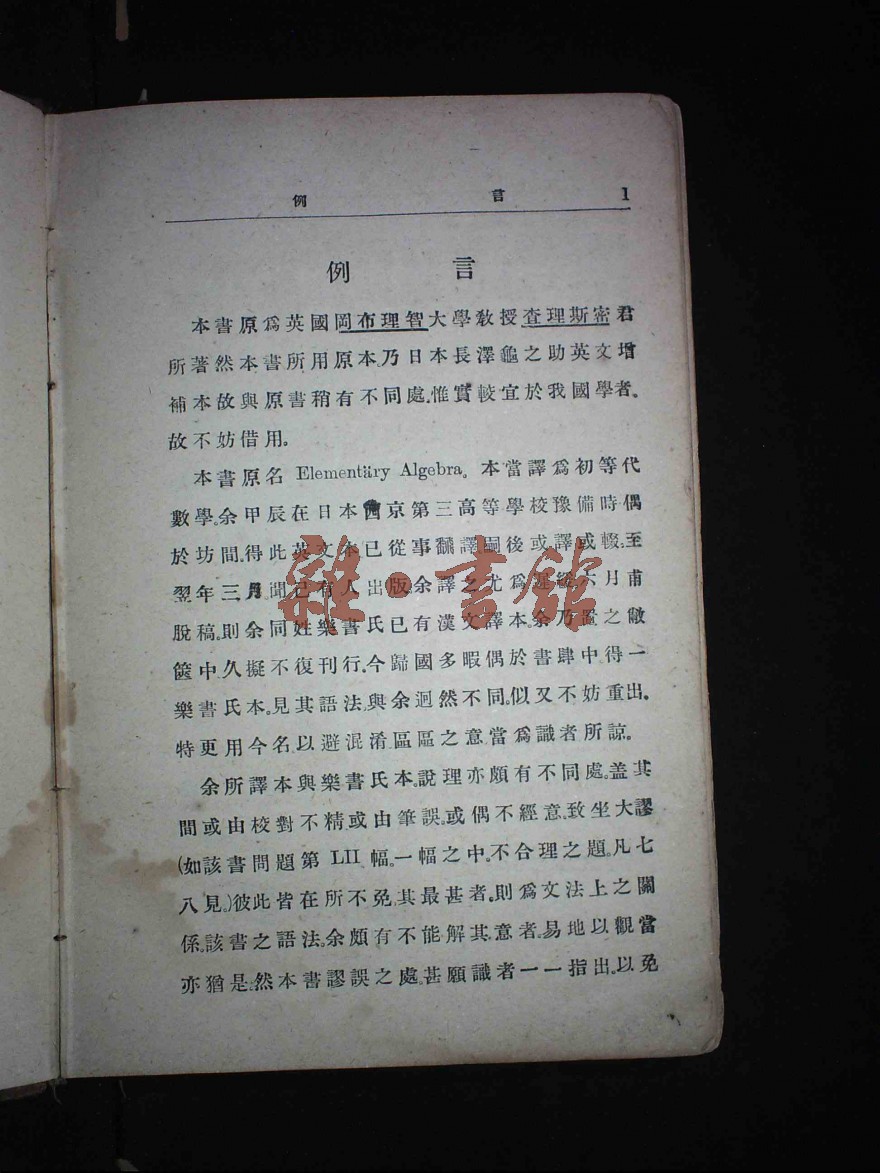 例言 1
例言
本書原爲英國岡布理智大學敎授查理斯密君
所著然本書所用原本乃日本長澤龜之助英文增
補本故與原書稍有不同處。惟實較宜於我國學者。
故不妨借用。
本書原名 Elementäry Algebra。本當譯爲初等代
數學。余甲辰在日本西京第三高等學校豫備時偶
於坊間。得此英文本已從事翻譯嗣後或譯或輟。至
翌年三月聞已有人出版余譯之尤爲遲緩六月甫
脫稿。則余同姓樂書氏已有漢文譯本。余乃置之敝
篋中。久擬不復刊行。今歸國多暇偶於書肆中得一
樂書氏本。見其語法與余迥然不同。似又不妨重出。
特更用今名。以避混淆。區區之意當爲識者所諒。
余所譯本與樂書氏本。說理亦頗有不同處。蓋其
間或由校對不精。或由筆誤。或偶不經意。致坐大謬
(如該書問題第 LII 幅。一幅之中。不合理之題。凡七
八見。)彼此皆在所不免。其最甚者。則爲文法上之關
係。該書之語法。余頗有不能解其意者。易地以觀當
亦猶是。然本書謬誤之處。甚願識者一一指出。以免
雜·書館